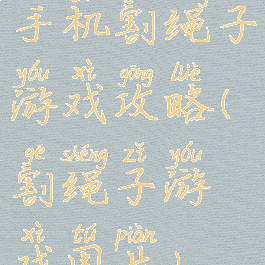 手机割绳子
yóu xì gōng lüè
游戏攻略(
gē shéng zǐ yóu
割绳子游
xì tú piàn
戏图片)